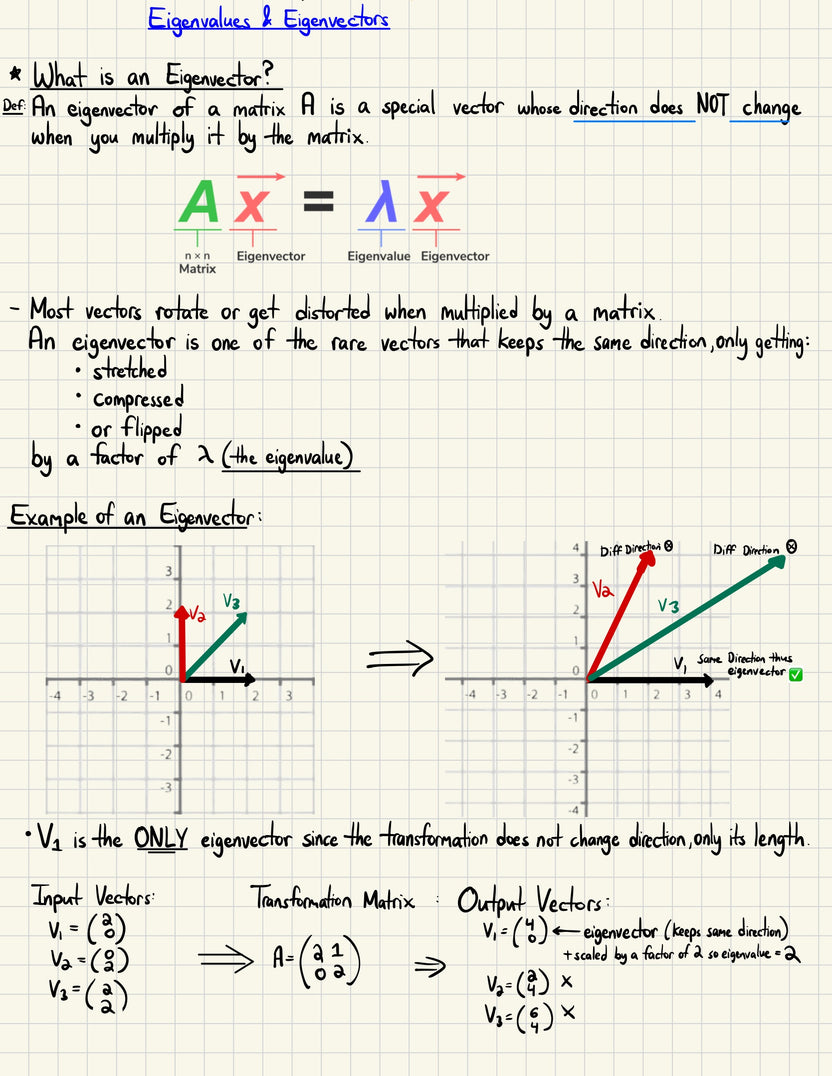 Eigenvalues & Eigenvectors
* What is an Eigenvector?
Def: An eigenvector of a matrix A is a special vector whose direction does NOT change
when you multiply it by the matrix.
A x = λ x
n × n Matrix Eigenvector Eigenvalue Eigenvector
- Most vectors rotate or get distorted when multiplied by a matrix.
An eigenvector is one of the rare vectors that keeps the same direction, only getting:
• stretched
• compressed
• or flipped
by a factor of λ (the eigenvalue)
Example of an Eigenvector:
3
2
1
0
-4 -3 -2 -1 0 1 2 3
-1
-2
-3
V2
V3
V1
⇒
4
3
2
1
0
-4 -3 -2 -1 0 1 2 3 4
-1
-2
-3
-4
Diff Direction ⊗
Diff Direction ⊗
V2
V3
V1 Same Direction thus
eigenvector ✅
• V1 is the ONLY eigenvector since the transformation does not change direction, only its length.
Input Vectors: Transformation Matrix : Output Vectors:
V1 = (2 0)
V2 = (0 2)
V3 = (2 2)
⇒ A = (2 1
0 2) ⇒
V1 = (4 0) ← eigenvector (keeps same direction)
+ scaled by a factor of 2 so eigenvalue = 2
V2 = (2 4) ×
V3 = (6 4) ×